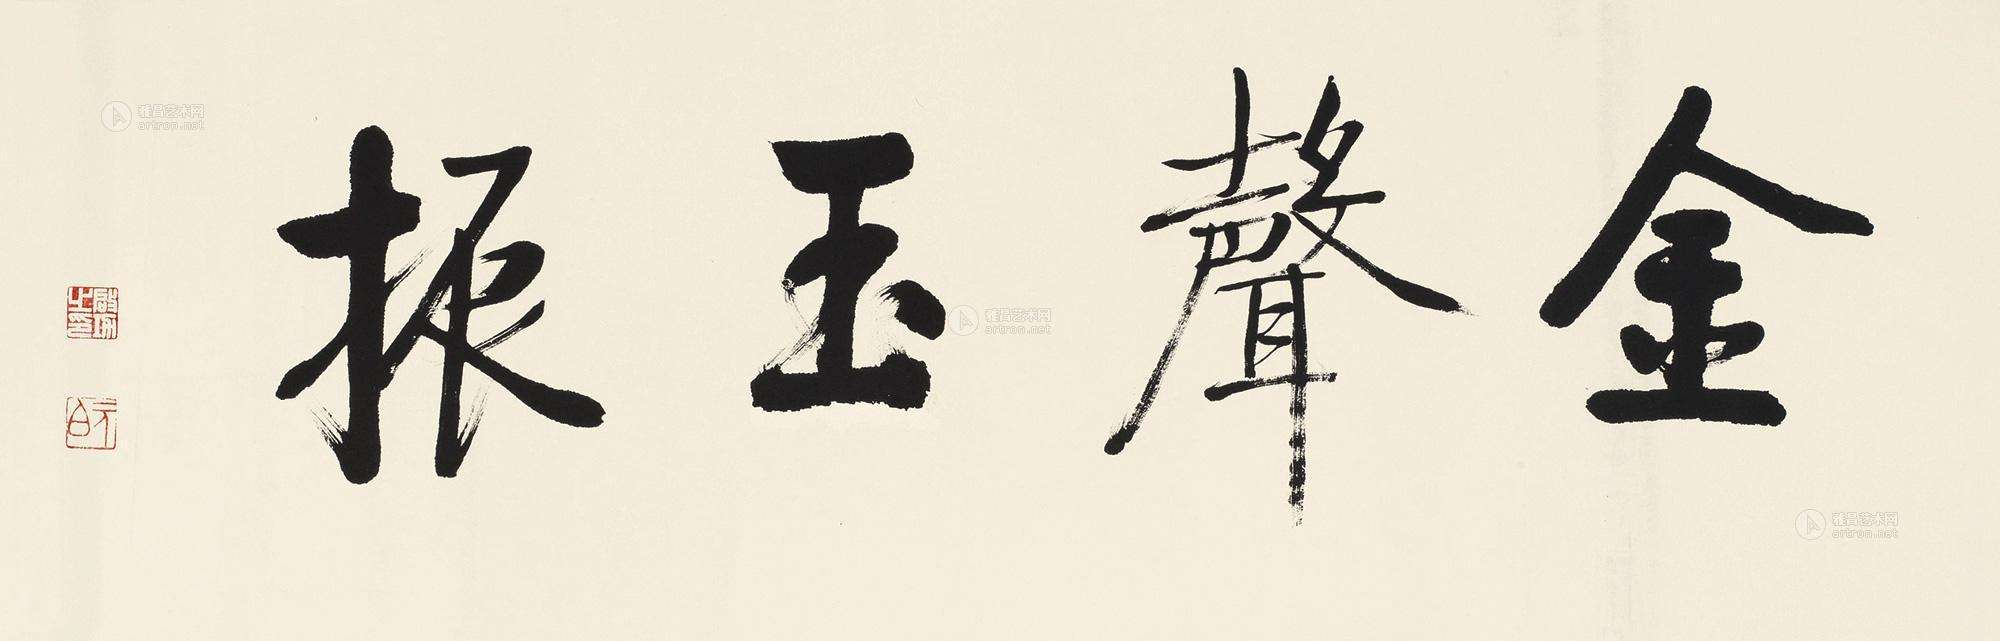 金聲玉振
雅昌艺术网
artron.net
雅昌艺术网
artron.net
雅昌艺术网
artron.net